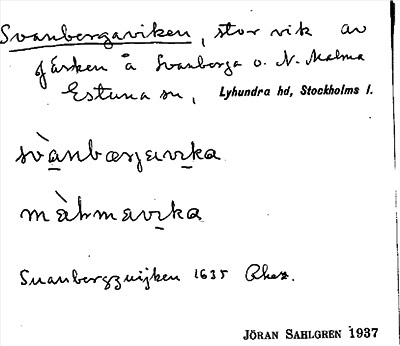 Svanbergaviken, stor vik av
fjärden å Svanberga o. N. Malma
Estuna sn, Lyhundra hd, Stockholms l.
svànbærjavika
màlmavika
Suanbergzwijken 1635 Rhez.
JÖRAN SAHLGREN 1937